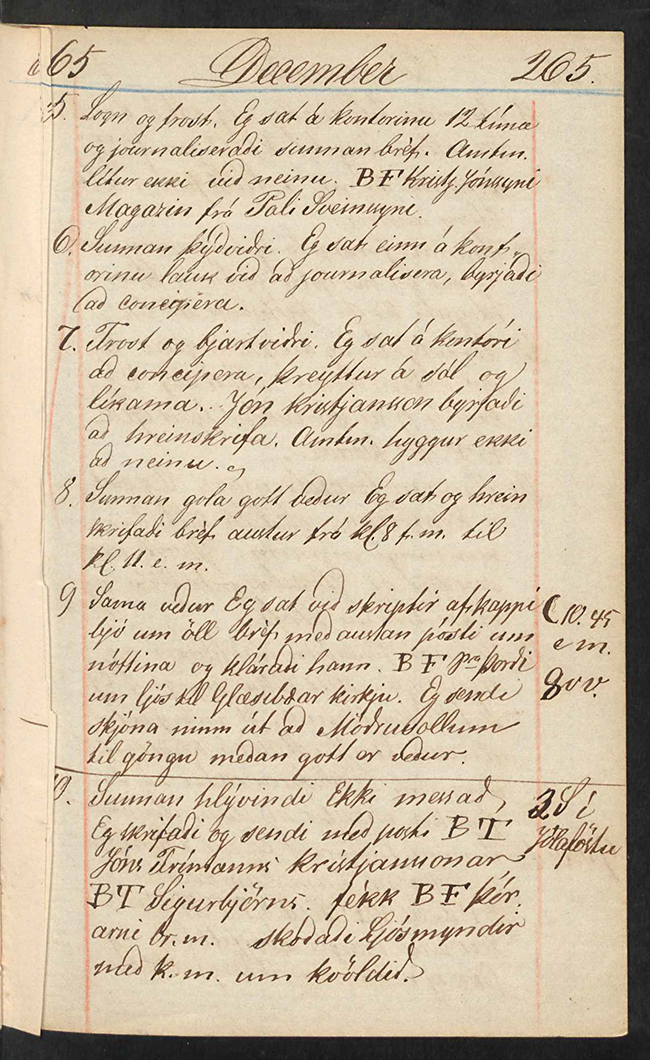 65 December 265.
5. Logn og frost. Eg sat á kontorinu 12 tíma
og journaliseraði sunnanbréf. Amtm.
lítur ekki við neinu. BF Kristj. Jónssyni
Magazin frá Páli Sveinssyni.
6. Sunnan þýðviðri. Eg sat einn á kont-
orinu lauk við að journalisera, byrjaði
að concipera.
7. Frost og bjartviðri. Eg sat á kontóri
að concipera, þreyttur á sál og
líkama. Jón Kristjansson byrjaði
að hreinskrifa. Amtm. hyggur ekki
að neinu.
8. Sunnan gola gott veður Eg sat og hrein
skrifaði bréf austur frá kl. 8 f. m. til
kl. 11. e. m.
9 Sama veður Eg sat við skriptir af kappi
bjó um öll bréf með austan pósti um
nóttina og kláraði hann. BF Sra Þorði
um ljós til Glæsibæar kirkju. Eg sendi
skjóna minn út að Möðruvollum
til göngu meðan gott er veður.
( 10.45
e m.
8 v.
10. Sunnan hlývindi Ekki messað,
Eg skrifaði og sendi með posti BT
Jóns Frímanns Kristjánssonar
BT Sigurbjörns. fékk BF Þór.
arni br. m. skoðaði Ljósmyndir
með k. m. um kvöldið.
2 S í
Jólaföstu